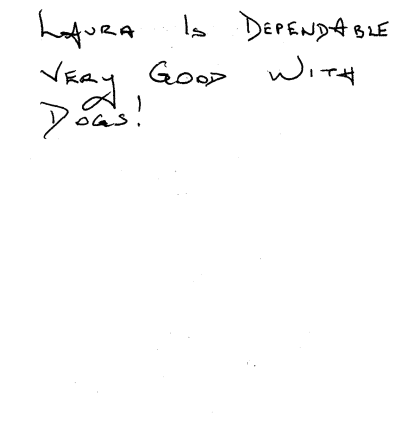 LAURA IS DEPENDABLE
VERY GOOD WITH
DOGS!